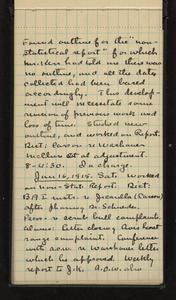 Found outline for the "non-
statistical report" for which
Mr. Kerr had told me there was
no outline, and all the data
collected had been based
accordingly. This develop-
ment will necessitate some
revision of previous work and
loss of time. Studied new
outline, and worked on Report.
Dict: Carson re warehouse
at adjustment.
8-5:30. In charge.
June 16, 1915. Sat. worked
on Non-Stat. Report. Dict:
re Jicarilla (Carson)
after phoning Dr. Schrader.
Pecos re scrub bull complaint.
Alamo: letter closing
range complaint. Conference
with re warehouse letter
which he approved. Weekly
report to J.K. A.O.W. also